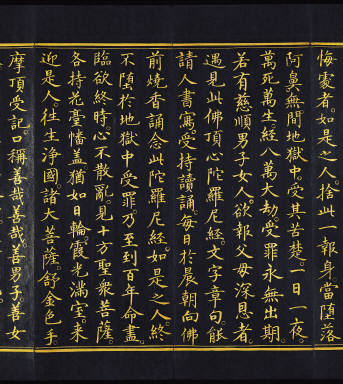 悔處者。如是之人。捨此一報身當墮落
阿鼻無間地獄中。受其苦楚。一日一夜。
萬死萬生。經八萬大劫。受罪永無出期。
若有慈順男子女人。欲報父母深恩者。
遇見此佛頂心陀羅尼經。文字章句。能
請人書寫。受持讀誦。每日於晨朝向佛
前燒香誦念此陀羅尼經。如是之人。終
不墮於地獄中受罪。乃至到百年命盡。
臨欲終時。心不散亂。見十方聖衆菩薩。
各持花臺幡蓋。猶如日輪。霞光滿室。來
迎是人。往生淨國。諸大菩薩。舒金色手。
摩頂受記。口稱善哉善哉。善男子善女